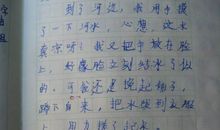 到了河边，我用手摸
了一下河水，心想：这水
真凉呀！我又把手放在脸
上，好像脸立刻结冰了似
的。可我还是挽起袖子，
蹲下身来，把水泼到衣服
上，用力搓了起来。